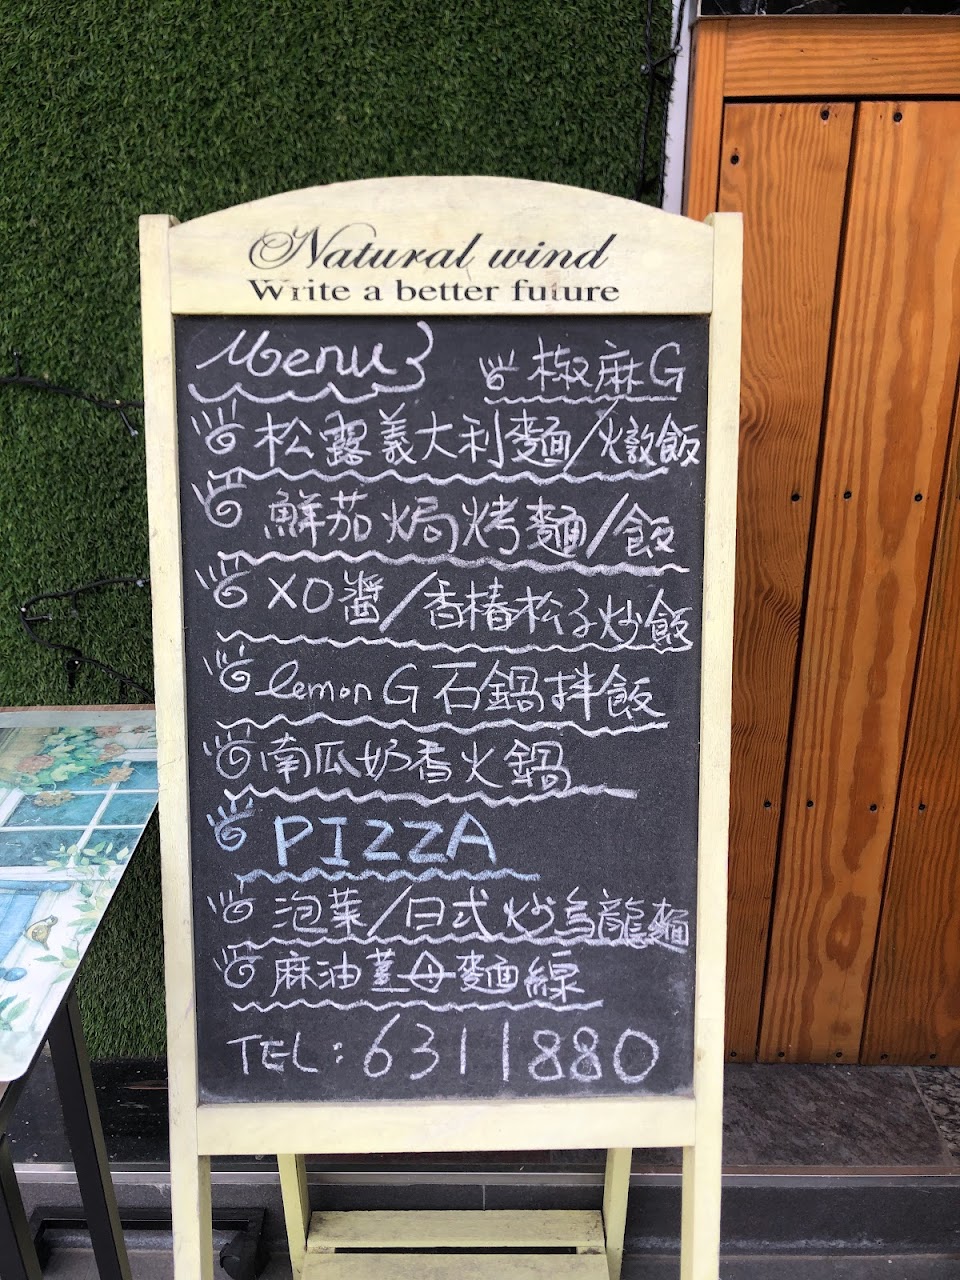 Natural wind
Write a better future
Menu
椒麻G
松露義大利麵/燉飯
鮮茄焗烤麵/飯
XO醬/香椿松子炒飯
lemon G石鍋拌飯
南瓜奶香火鍋
PIZZA
泡菜/日式炒烏龍麵
麻油薑母麵線
TEL:6311880